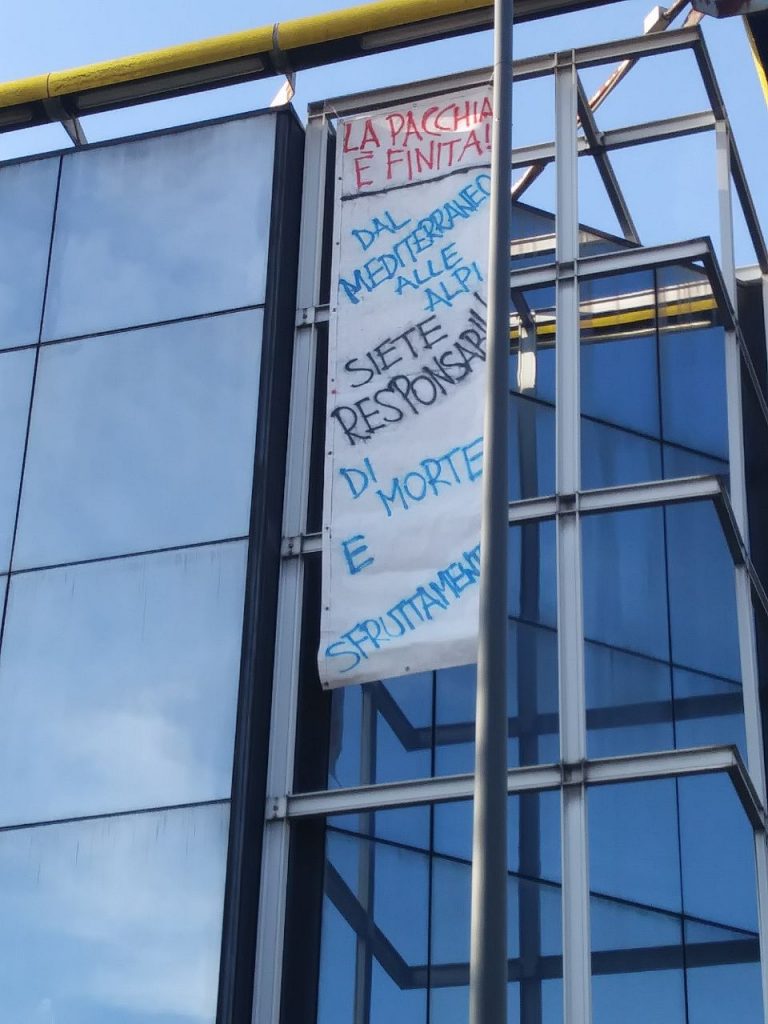 LA PACCHIA
È FINITA!
DAL
MEDITERRANEO
ALLE
ALPI
SIETE
RESPONSABILI
DI
MORTE
E
SFRUTTAMENT